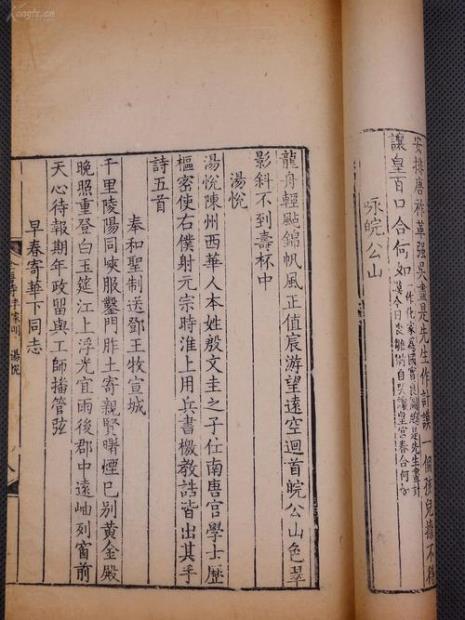 安排唐祚革强吴盡是先生作計謨一個孩兒擁不得
讓皇百口合何如
一作化家為國實良圖總是先生畫計
咏皖公山
龍舟輕颭錦帆風正值宸游望遠空迴首皖公山色翠
影斜不到壽杯中
湯悅
湯悅陳州西華人本姓殷文圭之子仕南唐官學士歷
樞密使右僕射元宗時淮上用兵書檄教誥皆出其手
詩五首
奉和聖制送鄧王牧宣城
千里陵陽同陝服鑿門胙土寄親賢曙煙已別黃金殿
晚照重登白玉筵江上浮光宜雨後郡中遠岫列窗前
天心待報期年政留與工師播管弦
早春寄華下同志
李家明 湯悅